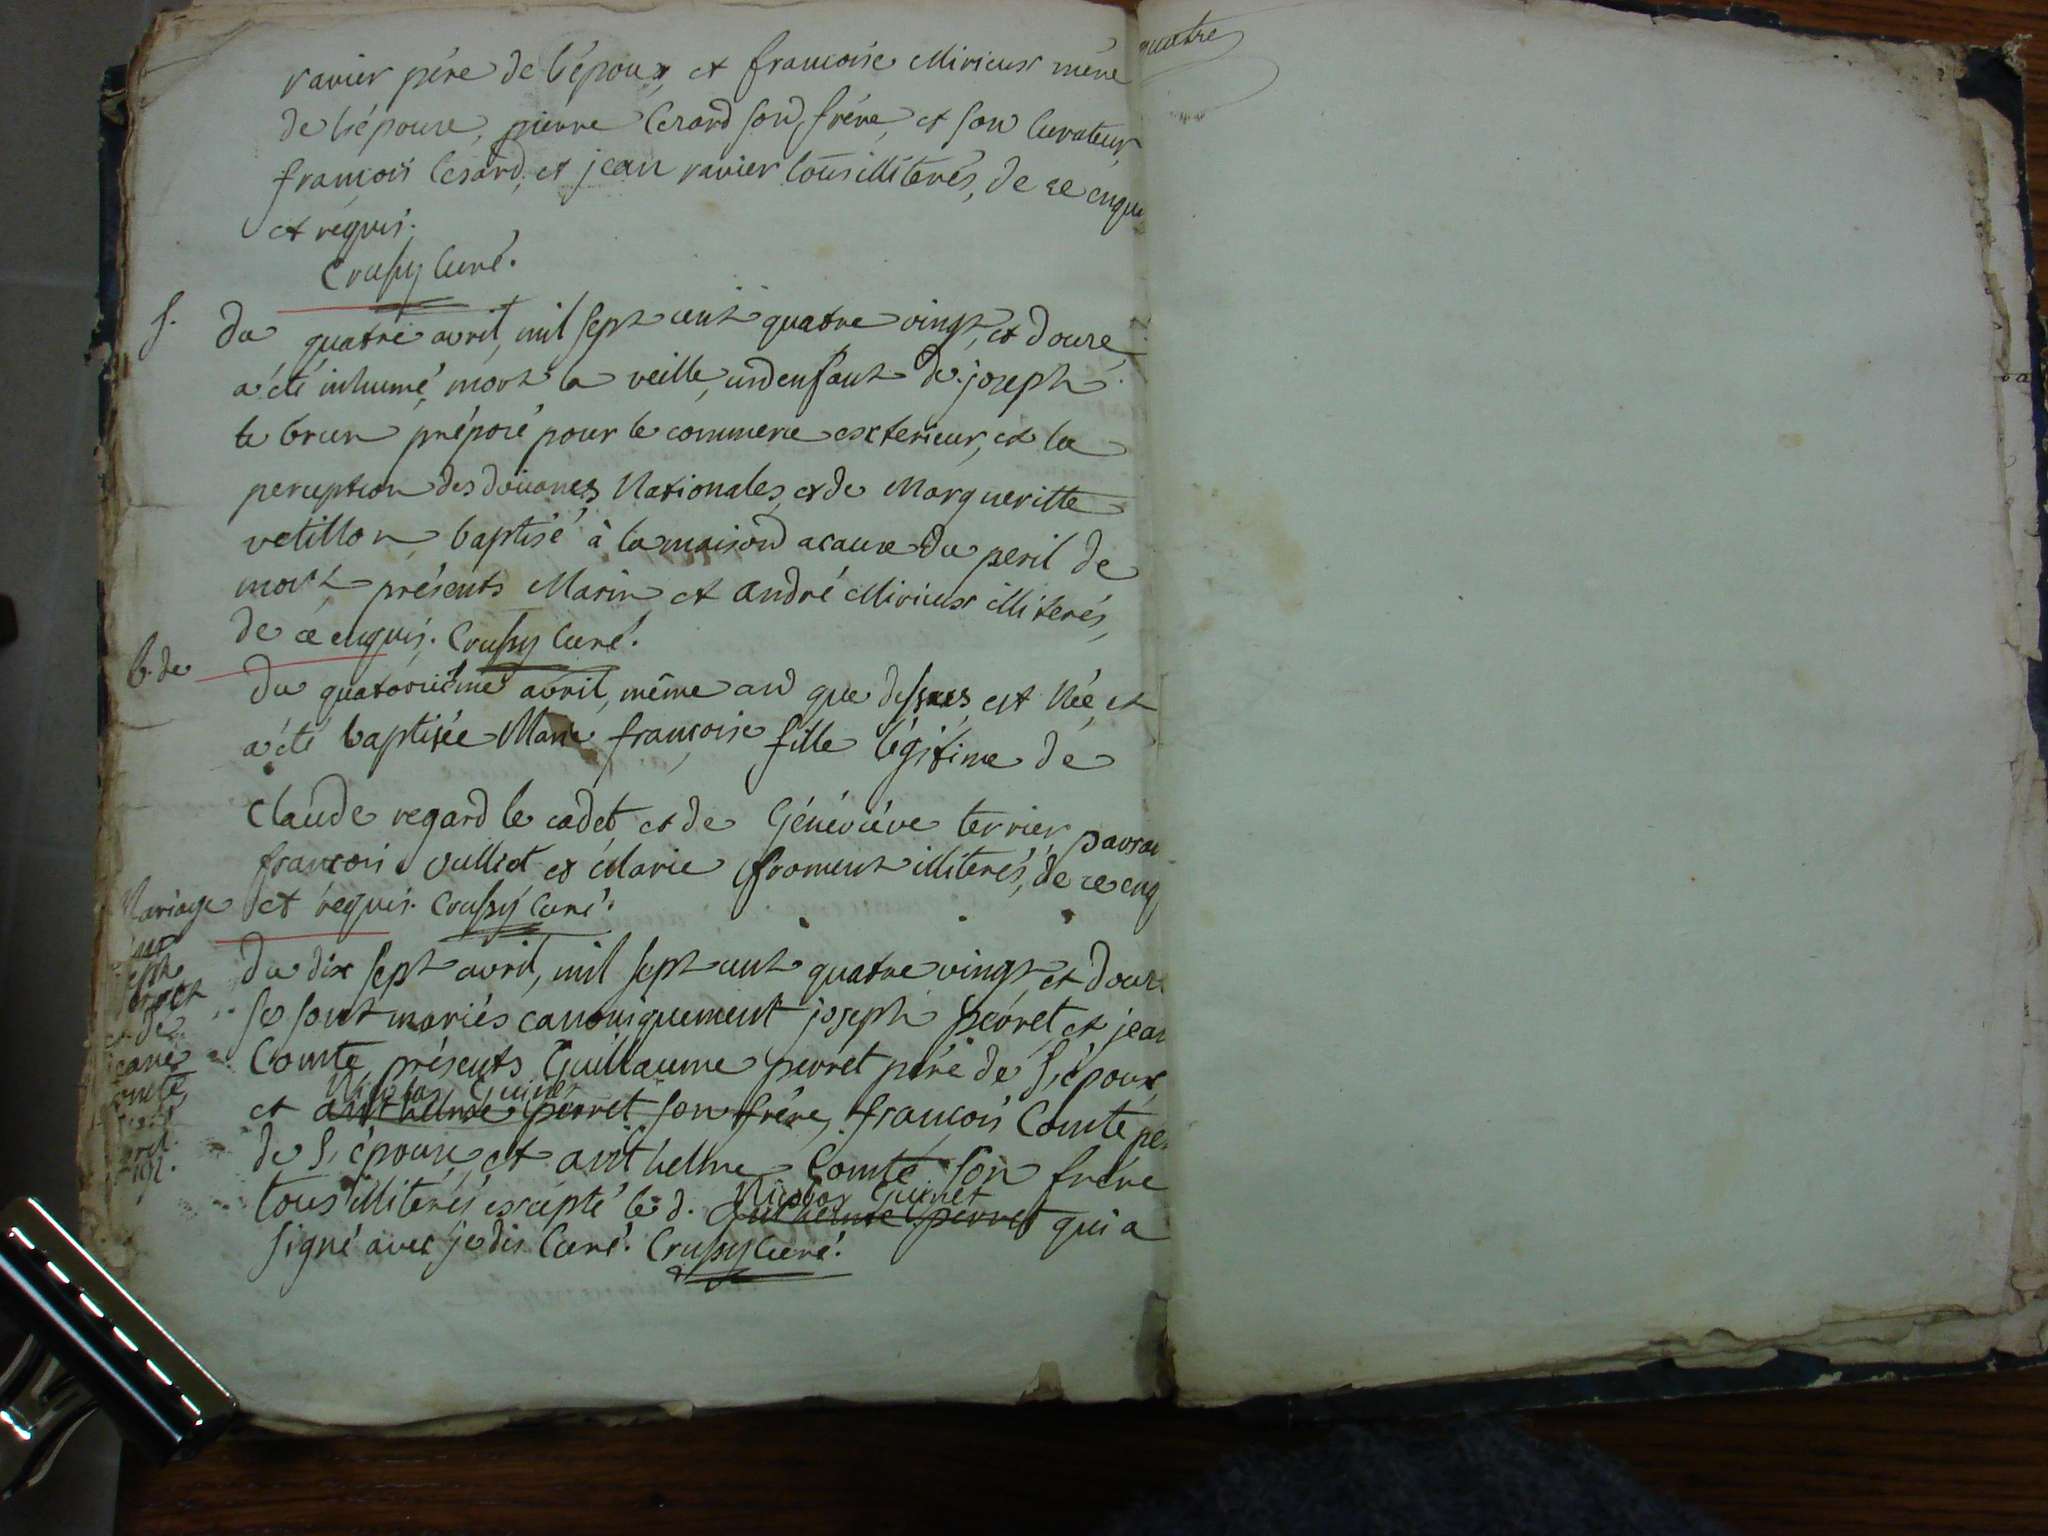 ravier père de l'époux, et francoise Mirieux mère
de l'épouse, pierre Cesard son frère, et son Curateur,
françois Cesard, et jean ravier tous illiterés, de ce enqui
et requis.
Crussy Curé.
S. du quatre avril, mil sept cent quatre vingt, et douze
a été inhumé, mort la veille, un enfant de joseph
le brun préposé pour le commerce exterieur, et la
perception des doüanes Nationales, et de Margueritte
vetillon baptisé à la maison a cause du peril de
mort présents Marin et andré Mirieux illiterés,
de ce enquis. Crussy Curé.
b. de du quatorzième avril, même an que dessus, est Née, et
a été baptisée Marie françoise fille légitime de
Claude regard le cadet, et de Géneviéve terrier, parrai
françois Vulliet et Marie froment illiterés, de ce enq
et requis. Crussy Curé.
Mariage
joseph
perret
et de
jeanne
Comte
du dix sept avril, mil sept cent quatre vingt, et douz
se sont mariés canoniquement joseph perret, et jean
Comte, présents Guillaume perret père de l'époux,
Nicolas Guinet
et anthelme perret son frère, françois Comte pe
de l'épouse, et anthelme Comte son frère
tous illiterés excepté le d. Nicolas Guinet
anthelme perret qui a
signé avec je dis Curé. Crussy Curé.
quatre